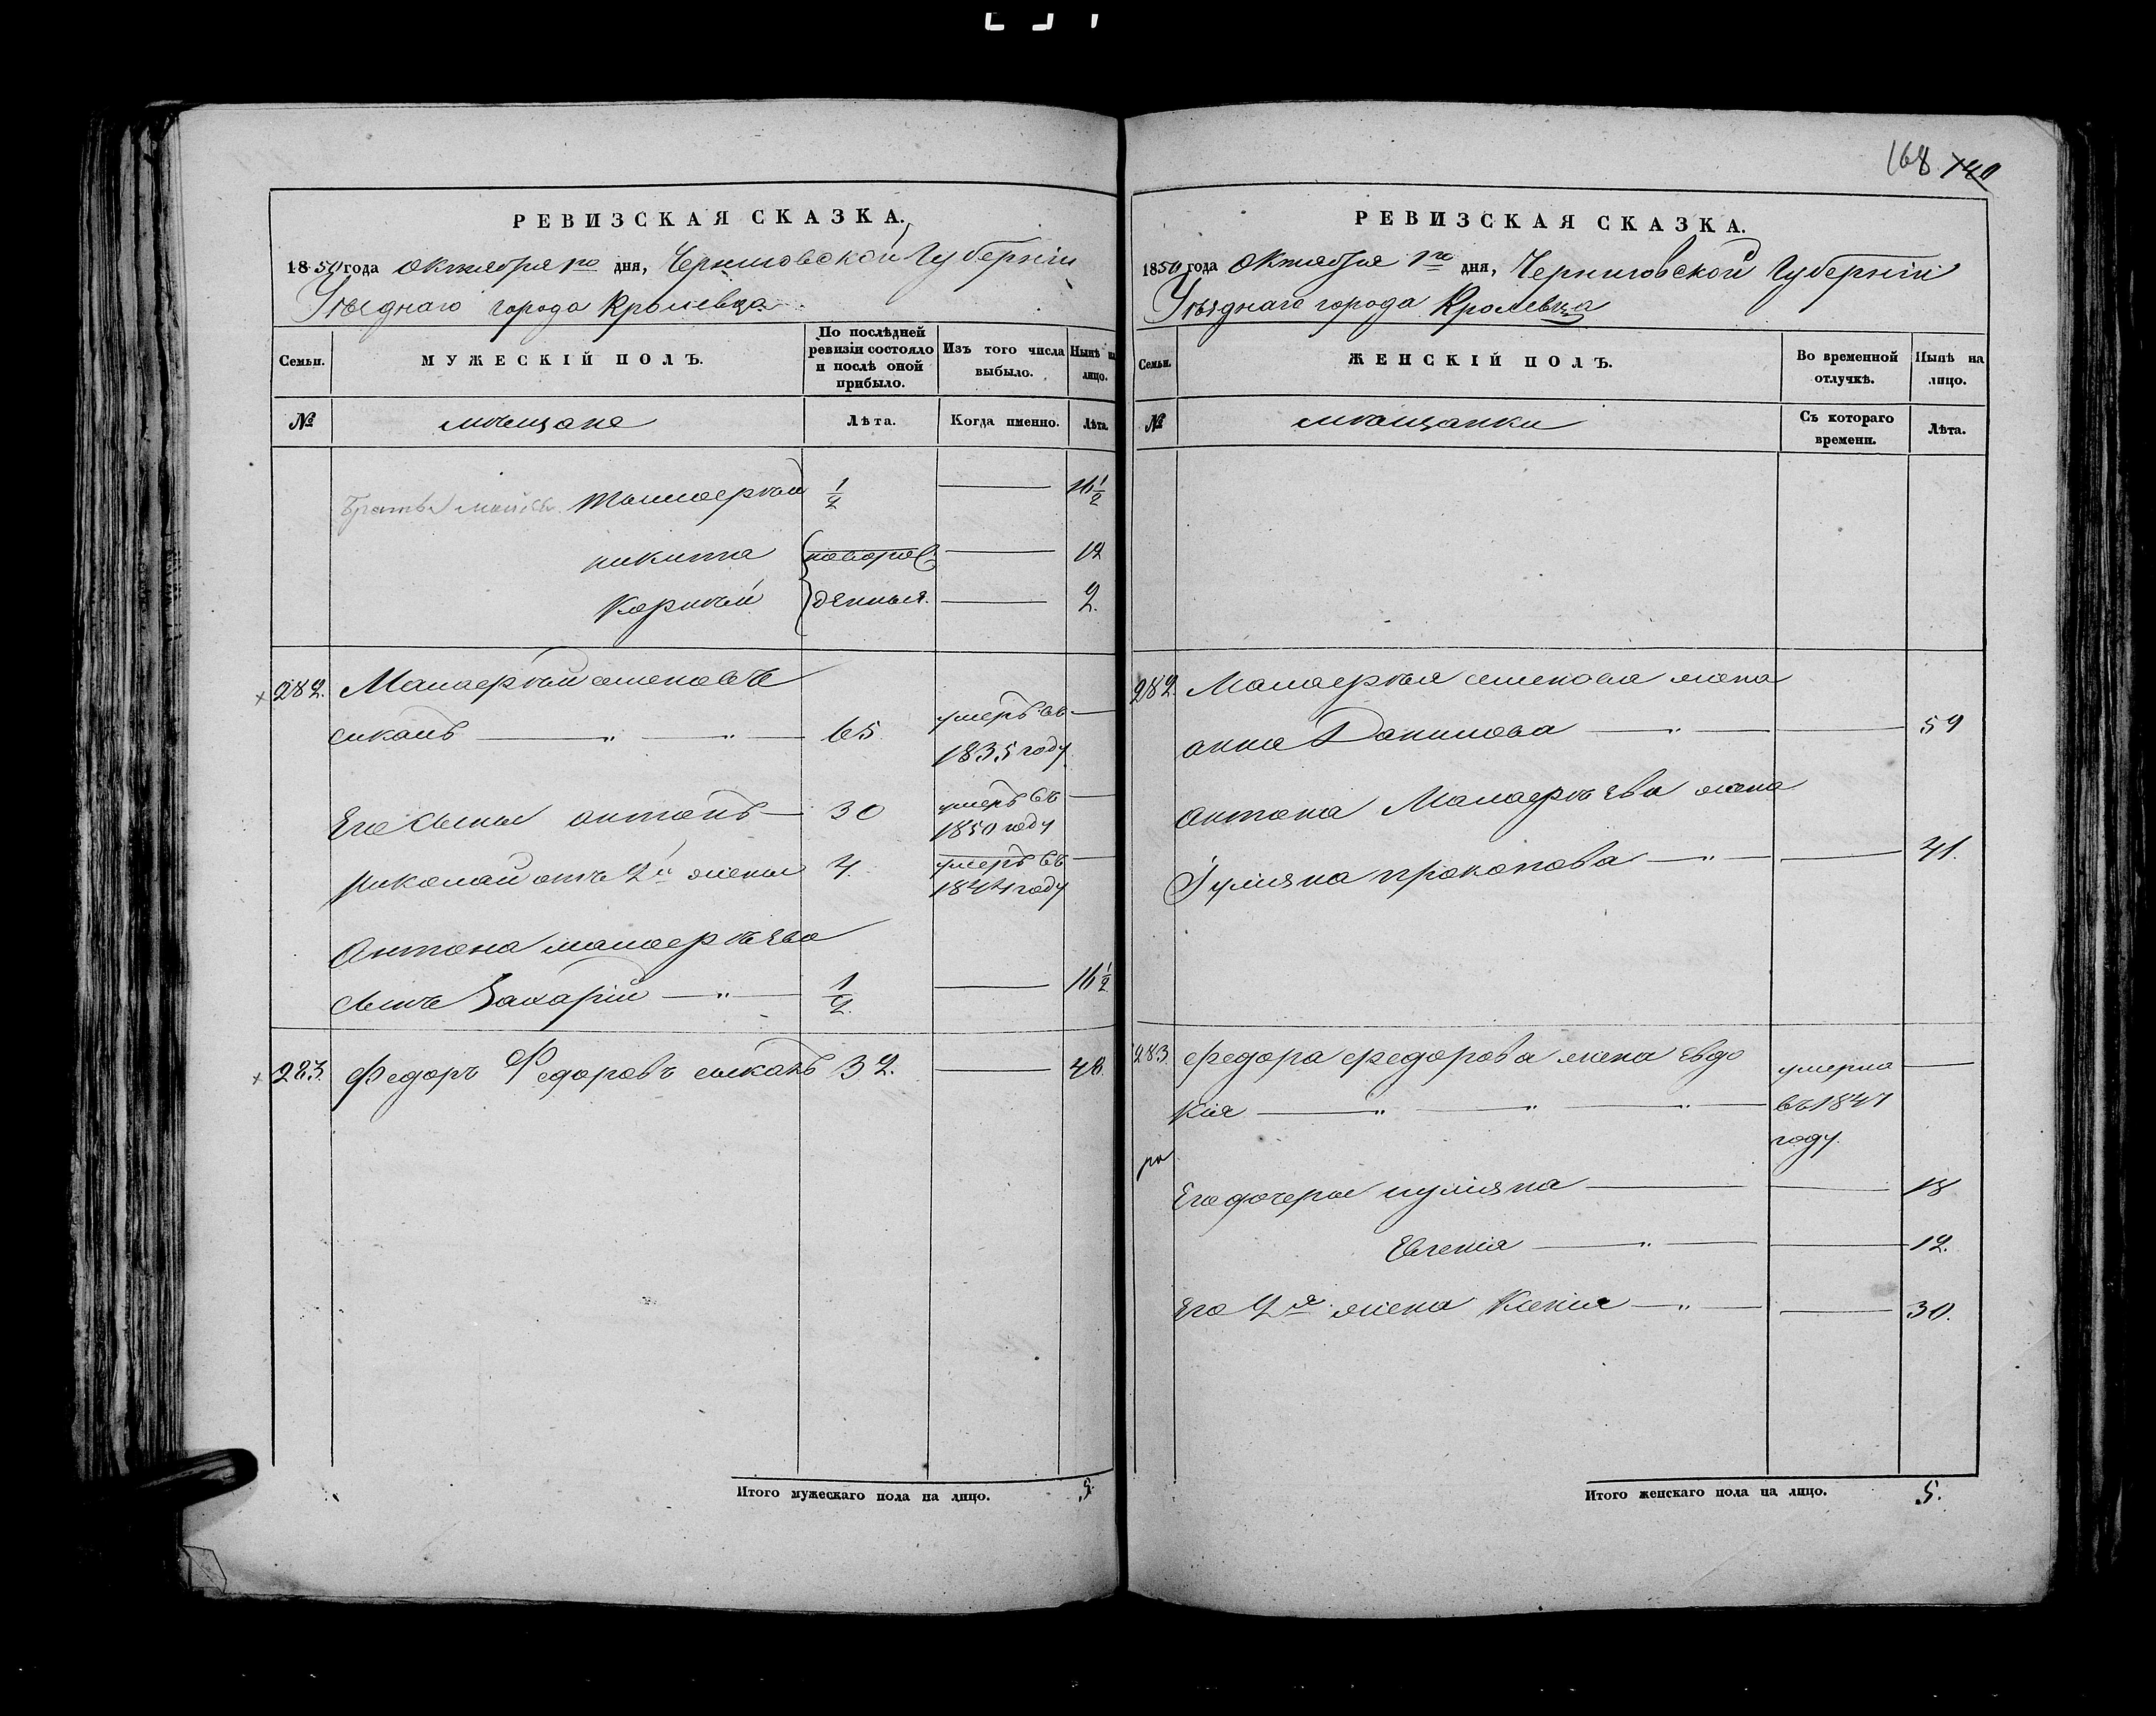 168 140
РЕВИЗСКАЯ СКАЗКА.
1850 года Октября 1го дня, Черниговской Губерніи
Уѣзднаго города Кролевца
Семьи.
МУЖЕСКІЙ ПОЛЪ.
По послѣдней ревизіи состояло и послѣ оной прибыло.
Изъ того числа выбыло.
Нынѣ на лицо.
№
мѣщане
Лѣта.
Когда именно.
Лѣта.
Братья 1/2 16 1/2
никита новорож 12
Корнѣй денныя. 2.
282. Малаерѣй
65 умеръ въ
1835 году
Его сыны антонъ 30 умеръ въ
1850 году
Николай отъ 2й жены 4. умеръ въ
1844 году
Антона
сынъ Захарій 1/2 16 1/2
283. Федоръ Федоровъ 32. 48.
Итого мужескаго пола на лицо. 5.
РЕВИЗСКАЯ СКАЗКА.
1850 года Октября 1го дня, Черниговской Губерніи
Уѣзднаго города Кролевца
Семьи.
ЖЕНСКІЙ ПОЛЪ.
Во временной отлучкѣ.
Нынѣ на лицо.
№
мѣщанки
Съ котораго времени.
Лѣта.
282. жена
анна Данилова 59
антона жена
Іулияна прокопова 41.
283. Федора Федорова жена Евдо
кія умерла
въ 1847
году.
Его дочеры иулияна 18
Евгенія 12.
Его 2я жена Ксенія 30.
Итого женскаго пола на лицо. 5.